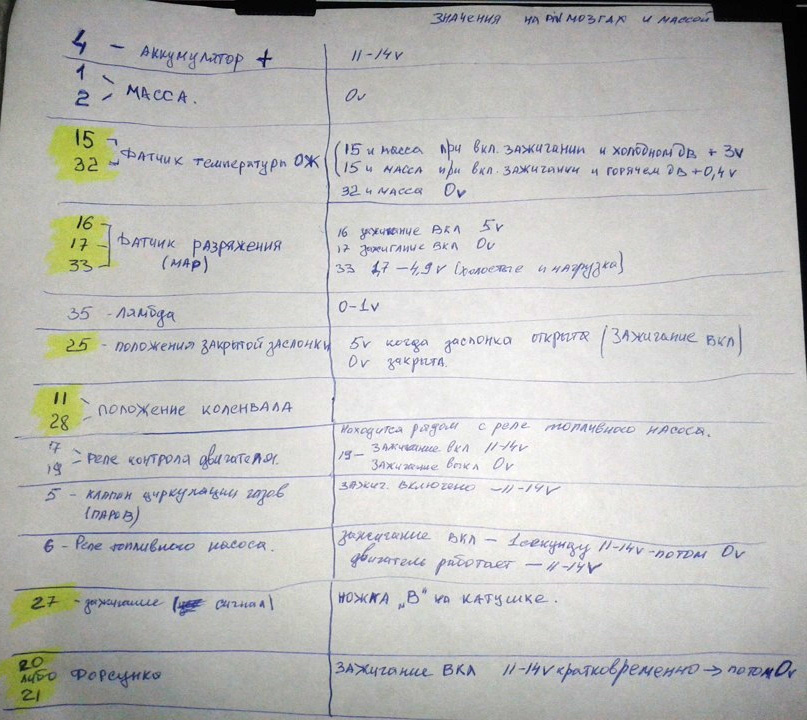 ЗНАЧЕНИЯ НА PIN МОЗГАХ И МАССОЙ
4 - АККУМУЛЯТОР + 11-14v
1
2 МАССА. 0v
15
32 ДАТЧИК ТЕМПЕРАТУРЫ ОЖ
(15 и масса при вкл. зажигании и холодном дв + 3v
(15 и масса при вкл. зажигании и горячем дв + 0,4v
32 и масса 0v
16
17 - ДАТЧИК РАЗРЯЖЕНИЯ
33 (МАР)
16 зажигание вкл 5v
17 зажигание вкл 0v
33 1,7 - 4,9v (холостые и нагрузка)
35 - Лямбда 0-1v
25 - положения закрытой заслонки 5v когда заслонка открыта (зажигание вкл)
0v закрыта.
11
28 ПОЛОЖЕНИЕ КОЛЕНВАЛА
Находится рядом с реле топливного насоса.
7
19 Реле контроля двигателя.
19 - Зажигание вкл 11-14v
Зажигание выкл 0v
5 - клапан циркуляции газов
(ПАРОВ)
Зажиг. включено - 11-14v
6 - Реле топливного насоса.
зажигание вкл - 1 секунду 11-14v - потом 0v
двигатель работает - 11-14v
27 - зажигание ( сигнал) НОЖКА „В" НА КАТУШКЕ.
20
либо Форсунка
21
ЗАЖИГАНИЕ ВКЛ 11-14v кратковременно → потом 0v